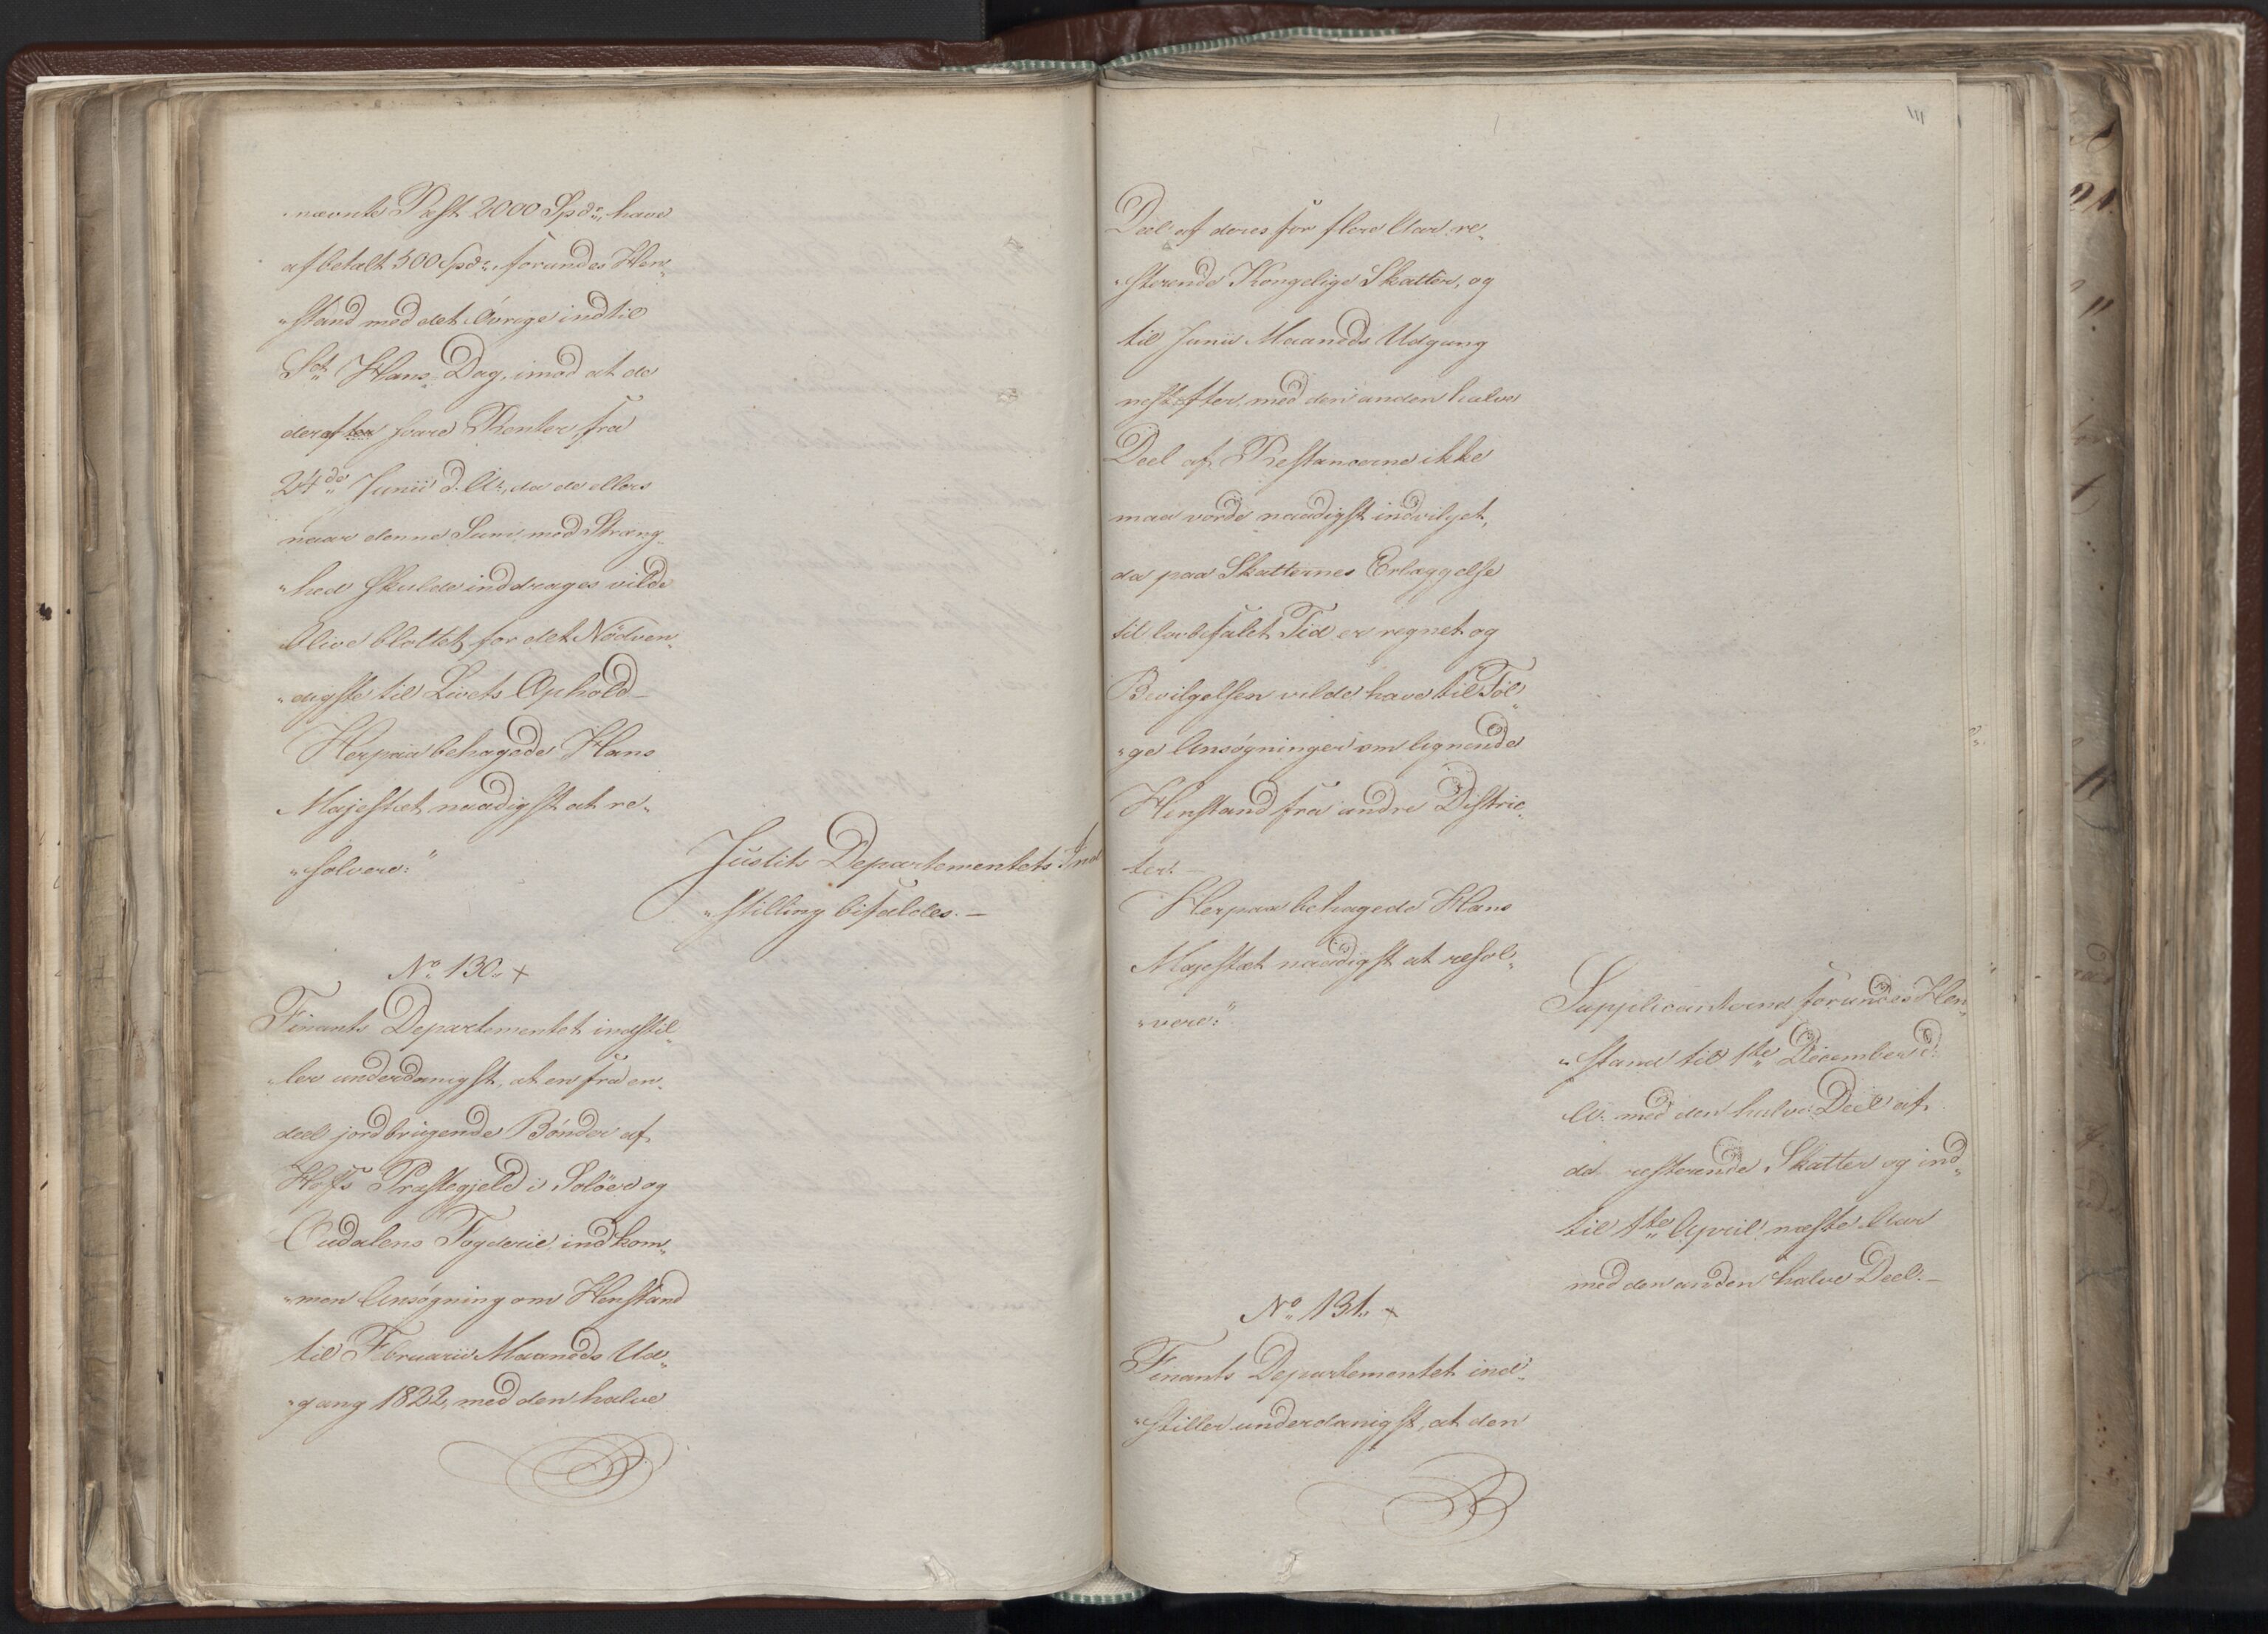 nævnte Post 2000 Spdr, have
afbetalt 500 Spdr, forundes Hen„
„stand med det övrige indtil
Sct Hans Dag, imod at de
derefter svare Renter fra
24de Junii d. A:, da de ellers
naar denne Sum med Stræng„
„hed skulde inddrages vilde
blive blottet for det Nödven„
„digste til Livets Ophold –
Herpaa behagede Hans
Majestæt naadigst at re„
„solvere:"
Justits Departementets Ind
„stilling bifaldes. –
No 130. +
Finants Departementet indstil„
„ler underdanigst, at en fra en„
deel jordbrugende Bönder af
Hofs Præstegjeld i Solöer og
Oudalens Fogderie indkom„
„men Ansögning om Henstand
til Februarii Maaneds Ud„
„gang 1822, med den halve
111
Deel af deres for flere Aar re„
„sterende Kongelige Skatter, og
til Junii Maaneds Udgang
nestefter, med den anden halve
Deel af Restancerne ikke
maa vorde naadigst indvilget,
da paa Skatternes Erlæggelse
til lovbefalet Tid er regnet og
Bevilgelsen vilde have til Föl„
„ge Ansögninger om lignende
Henstand fra andre Distric„
ter. –
Herpaa behagede Hans
Majestæt naadigst at resol„
„vere:"
Supplicanterne forundes Hen„
„stand til 1ste December d:
A: med den halve Deel af
de resterende Skatter og ind„
til 1ste April næste Aar
med den anden halve Deel. –
No 131. +
Finants Departementet ind„
„stiller underdanigst, at den